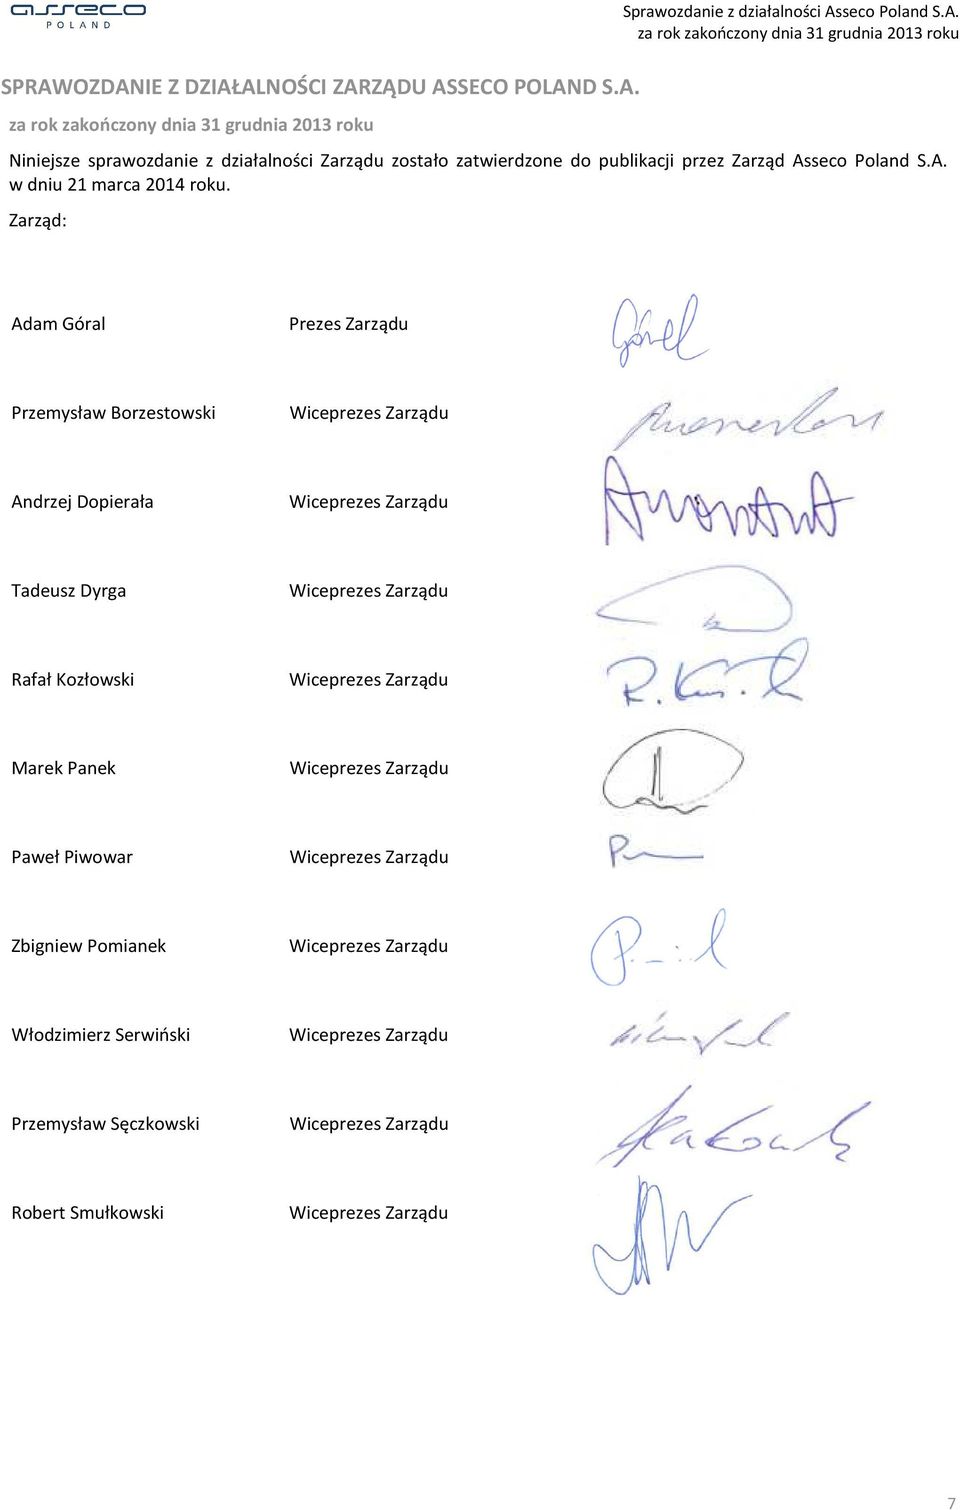 asseco
POLAND
Sprawozdanie z działalności Asseco Poland S.A.
za rok zakończony dnia 31 grudnia 2013 roku
SPRAWOZDANIE Z DZIAŁALNOŚCI ZARZĄDU ASSECO POLAND S.A.
za rok zakończony dnia 31 grudnia 2013 roku
Niniejsze sprawozdanie z działalności Zarządu zostało zatwierdzone do publikacji przez Zarząd Asseco Poland S.A.
w dniu 21 marca 2014 roku.
Zarząd:
Adam Góral Prezes Zarządu Góral
Przemysław Borzestowski Wiceprezes Zarządu
Andrzej Dopierała Wiceprezes Zarządu
Tadeusz Dyrga Wiceprezes Zarządu
Rafał Kozłowski Wiceprezes Zarządu
Marek Panek Wiceprezes Zarządu
Paweł Piwowar Wiceprezes Zarządu
Zbigniew Pomianek Wiceprezes Zarządu
Włodzimierz Serwiński Wiceprezes Zarządu
Przemysław Sęczkowski Wiceprezes Zarządu
Robert Smułkowski Wiceprezes Zarządu
7